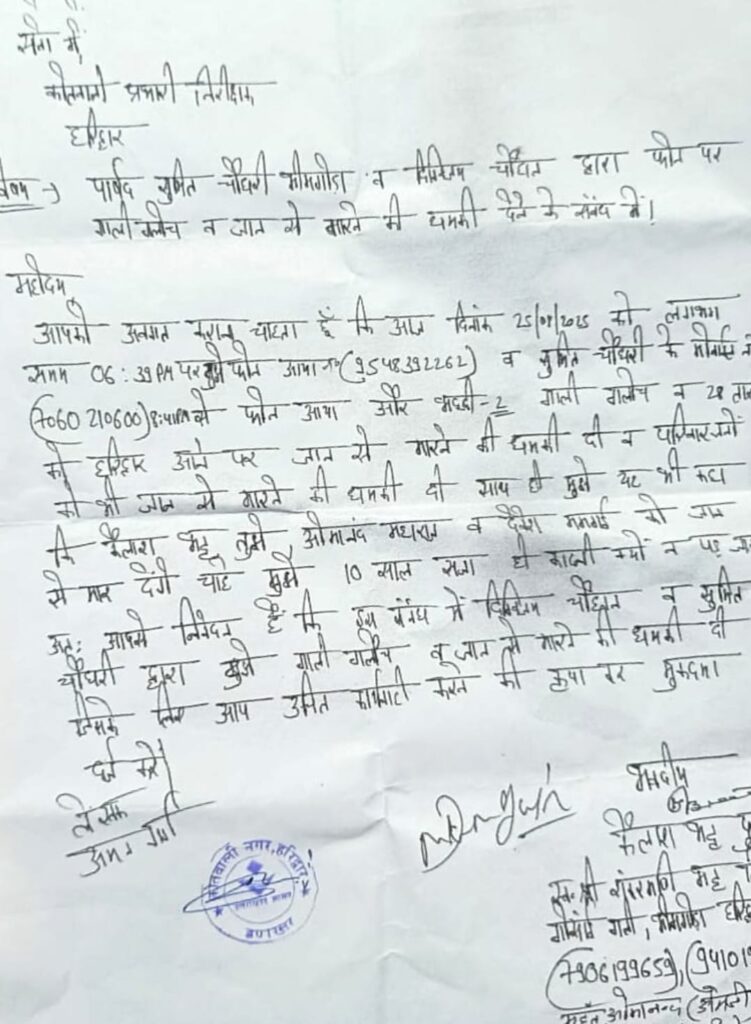 सेवा में,
कोतवाली प्रभारी निरीक्षक
हरिद्वार
विषय -> पार्षद सुमित चौधरी भीमगोडा व विक्रम चौहान द्वारा फोन पर
गाली गलौच व जान से मारने की धमकी देने के संबंध में।
महोदय,
आपको अवगत कराना चाहता हूँ कि आज दिनांक 25/08/2025 को लगभग
समय 06:39 PM पर मुझे फोन आया नं (9548392262) व सुमित चौधरी के मोबाईल
(7060210600) 8:41PM से फोन आया और भद्दी-2 गाली गलौच व 28 ता०
को हरिद्वार आने पर जान से मारने की धमकी दी व परिवारजनों
को भी जान से मारने की धमकी दी साथ ही मुझे यह भी कहा
कि कैलाश भट्ट तुझे ओमानंद महाराज व देवेश ममगाई को जान
से मार देंगे चाहे मुझे 10 साल सजा ही काटनी क्यों न पड़ जाए
अतः आपसे निवेदन है कि इस संबंध में विक्रम चौहान व सुमित
चौधरी द्वारा मुझे गाली गलौच व जान से मारने की धमकी दी
जिसके लिए आप उचित कार्यवाही करने की कृपा कर मुकदमा
दर्ज करें।
लेखक
भवदीय
कैलाश भट्ट
कोतवाली नगर, हरिद्वार
स्व० श्री भट्ट
गली, भीमगोडा
(7906199659), (94101
महंत ओमानन्द